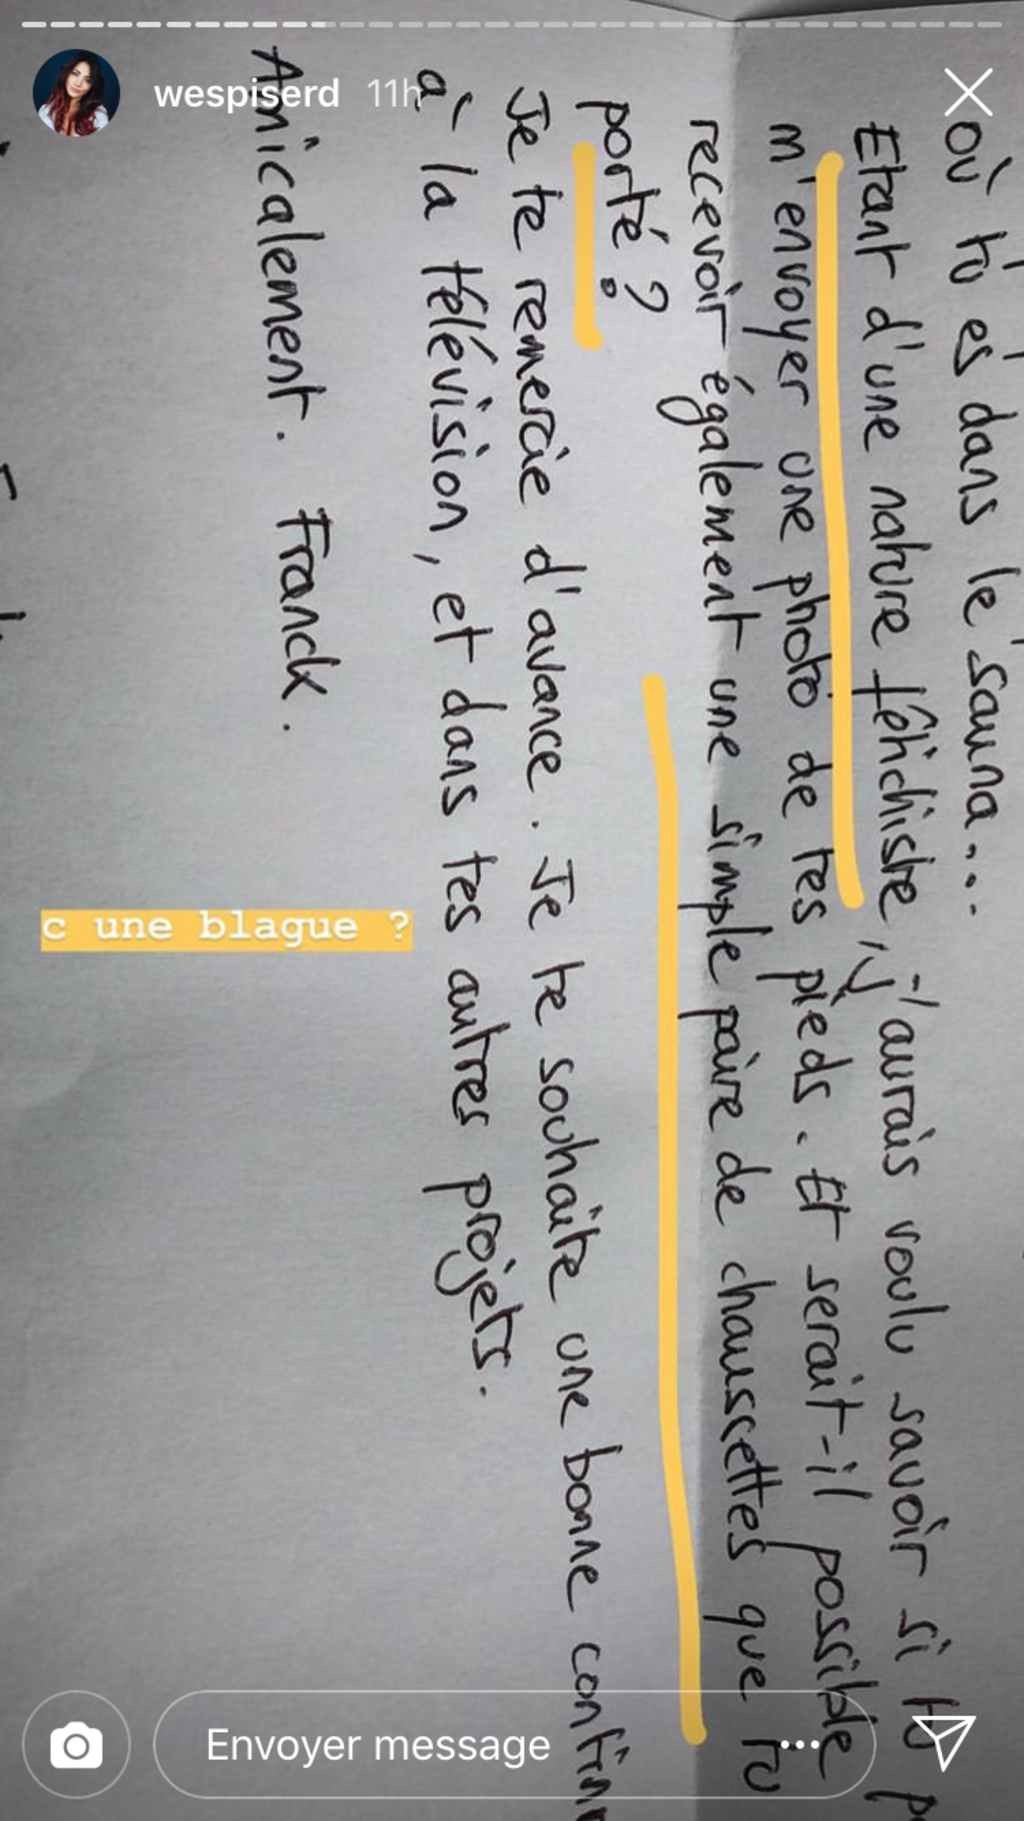 wespiserd 11h
où tu es dans le sauna...
Etant d'une nature fétichiste, j'aurais voulu savoir si tu
m'envoyer une photo de tes pieds. Et serait-il possible
recevoir également une simple paire de chaussettes que tu
porté ?
Je te remercie d'avance. Je te souhaite une bonne
à la télévision, et dans tes autres projets.
Amicalement. Franck.
c une blague ?
Envoyer message